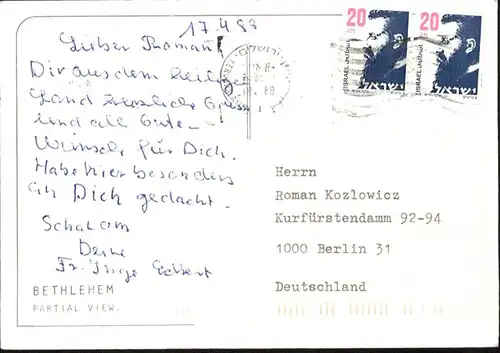 17.4.88
Lieber Romann
Dir aus dem Heilig.
Land herzliche Grüsse
und all Gute-
Wünsche für Dich.
Habe hier besonders
an Dich gedacht.
Schalom
Deine
Fr. Inge
BETHLEHEM
PARTIAL VIEW.
20
20
ISRAEL
ISRAEL
ישראל
ישראל
Herrn
Roman Kozlowicz
Kurfürstendamm 92-94
1000 Berlin 31
Deutschland